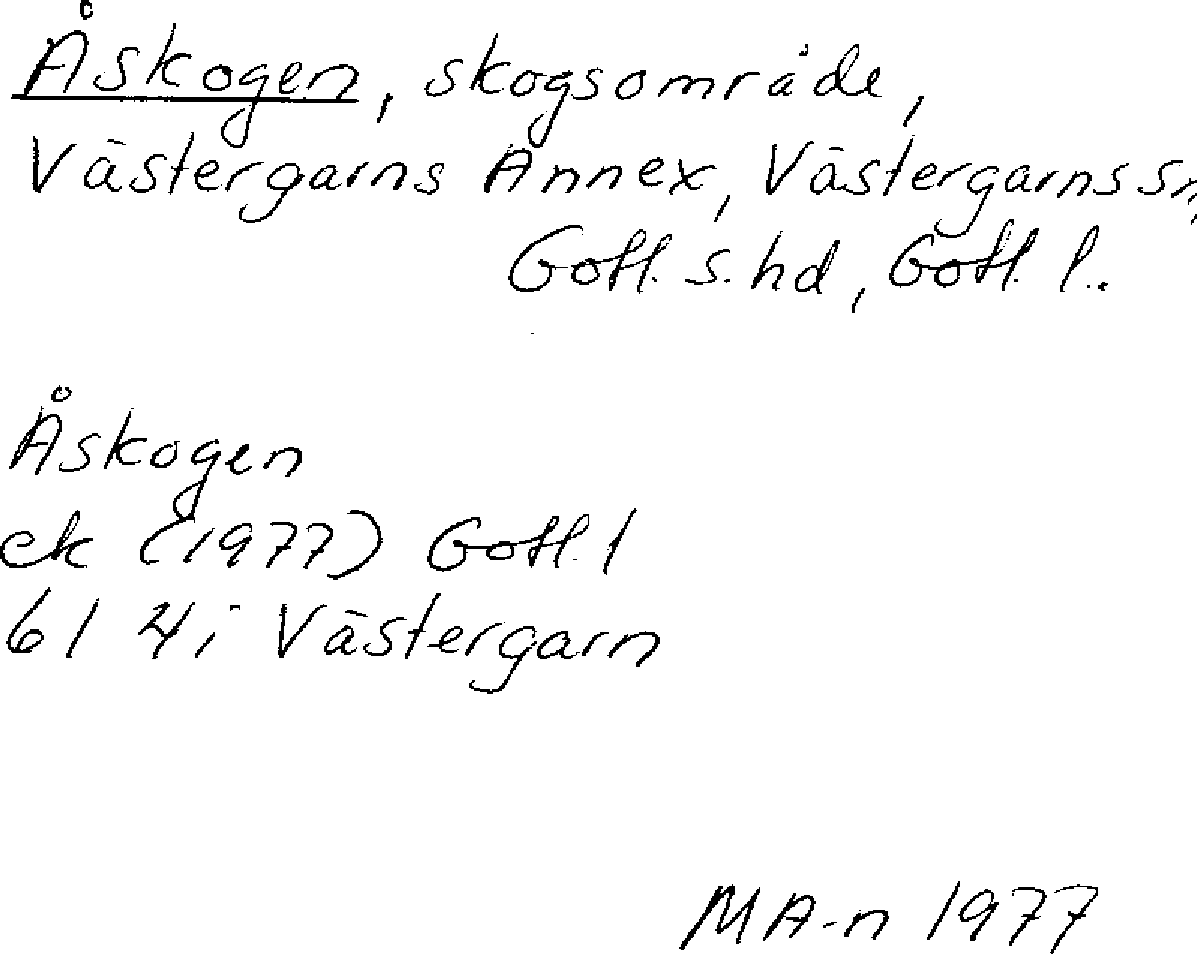 Åskogen, skogsområde,
Västergarns Annex, Västergarns sn,
Gotl. s. hd, Gotl. l.
Åskogen
ek (1977) Gotl. l
6I 4i Västergarn
MA-n 1977